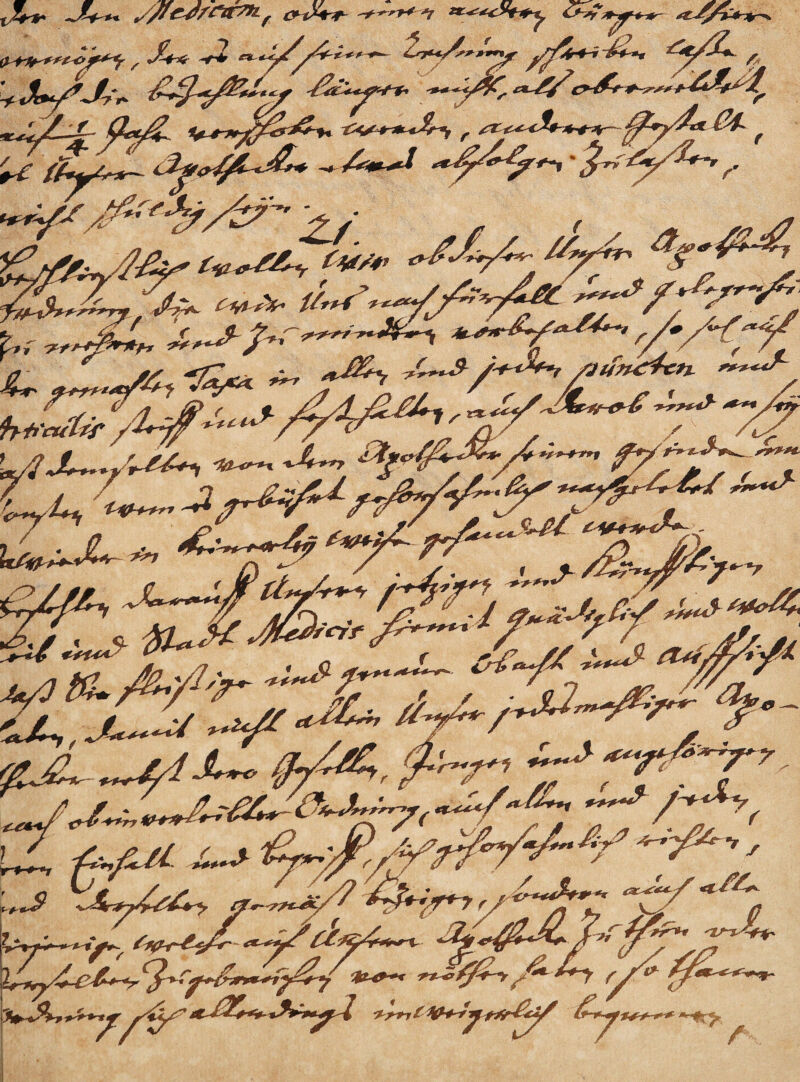 der den Medicum, oder einen andern Bürger alhier
vermögen, der es auf seine Rechnung schreiben laße,
jedoch die bezahlung länger nicht, als obermeldet,
auf 1/4 Jahr verschoben werden, anderer Gestalt,
sol Unser Apothecker etwas abfolgen Zulaßen,
nicht schuldig seyn.
21
Beschließlich wollen wir ob dieser Unser Apothecken
Ordnung, die wir Uns nach fürfall und gelegenhei
Zu mehren und Zu mindern vorbehalten, so sol auf
der gemachten Taxa in allen und jeden puncten und
Articulis steiff und fest halten, auch darob und an sey
daß demselben von dem Apothecker seinem gesinde un
sonsten wem es gebührt gehorsahmlich nachgelebet und
dawieder in keinerley weise gehandelt werde.
Befehlen darauff Unsern jetzigen und Künfftigen
Leib und Stadt Medicis hiemit gnädiglich und wollen
daß Sie fleißige und genaue Obacht und Auffsicht
haben, damit nicht allein Unser jedesmahliger Apo-
thecker nebst dero Gesellen, Jungen und angehörigen,
nach ob einverleibter Ordnung, auch allen und jeden,
deren Einhalt und Begriff, sich gehorsahmlich richten,
und derselben gemäß bezeigen, sondern auch alle
diejenige, welche auf Unserer Apothecke Zu thun oder
derselben Zugebrauchen von nöthen haben, so thaner
Ordnung sich allerdings unweigerlich bequemen,